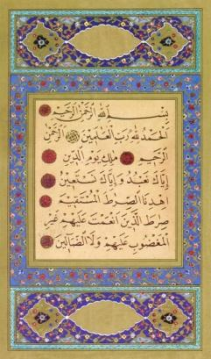 بِسْمِ اللهِ الرَّحْمٰنِ الرَّحِيمِ
اَلْحَمْدُ لِلهِ رَبِّ الْعٰلَمِينَ الرَّحْمٰنِ
الرَّحِيمِ مٰلِكِ يَوْمِ الدِّينِ
اِيَّاكَ نَعْبُدُ وَاِيَّاكَ نَسْتَعِينُ
اِهْدِنَا الصِّرَاطَ الْمُسْتَقِيمَ
صِرَاطَ الَّذِينَ اَنْعَمْتَ عَلَيْهِمْ غَيْرِ
الْمَغْضُوبِ عَلَيْهِمْ وَلَا الضَّالِّينَ